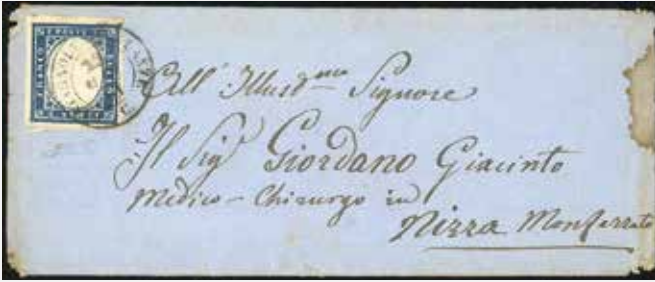 All' Illust.mo Signore
Il Sig.r Giordano Giacinto
Medico - Chirurgo in
Nizza Monferrato
FRANCO